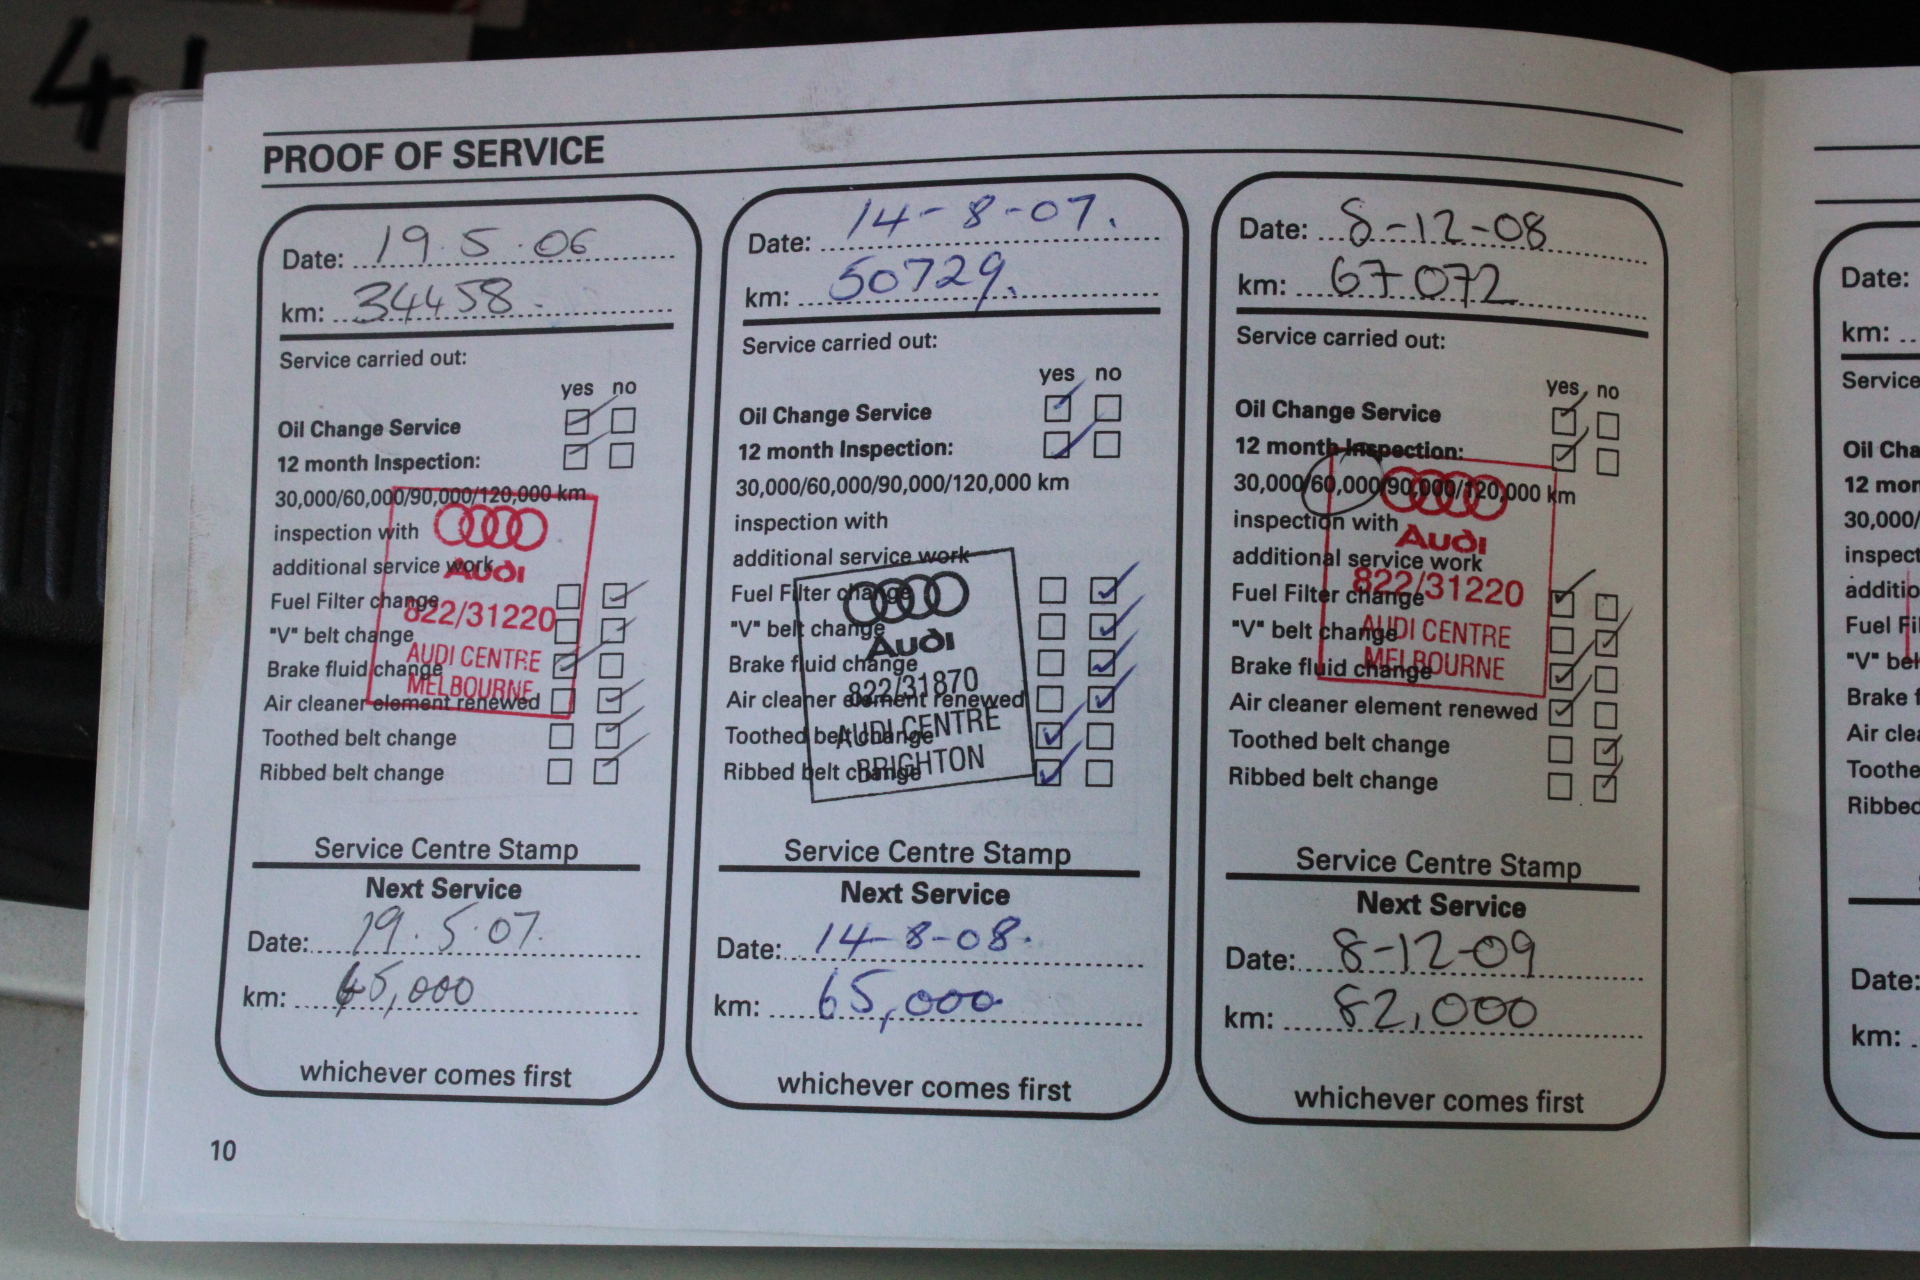 4
PROOF OF SERVICE
Date: 19.5.06
km: 34458.
Service carried out:
yes no
Oil Change Service
12 month Inspection:
30,000/60,000/90,000/120,000 km
inspection with
additional service work
Fuel Filter change
"V" belt change
Brake fluid change
Air cleaner element renewed
Toothed belt change
Ribbed belt change
Audi
822/31220
AUDI CENTRE
MELBOURNE
Service Centre Stamp
Next Service
Date: 19.5.07.
km: 45,000
whichever comes first
Date: 14-8-07.
km: 50729.
Service carried out:
yes no
Oil Change Service
12 month Inspection:
30,000/60,000/90,000/120,000 km
inspection with
additional service work
Fuel Filter change
"V" belt change
Brake fluid change
Air cleaner element renewed
Toothed belt change
Ribbed belt change
Audi
822/31870
AUDI CENTRE
BRIGHTON
Service Centre Stamp
Next Service
Date: 14-8-08.
km: 65,000
whichever comes first
Date: 8-12-08
km: 67072
Service carried out:
yes no
Oil Change Service
12 month Inspection:
30,000/60,000/90,000/120,000 km
inspection with
additional service work
Fuel Filter change
"V" belt change
Brake fluid change
Air cleaner element renewed
Toothed belt change
Ribbed belt change
Audi
822/31220
AUDI CENTRE
MELBOURNE
Service Centre Stamp
Next Service
Date: 8-12-09
km: 82,000
whichever comes first
10
Date:
km:
Service
Oil Cha
12 mon
30,000/
inspect
additio
Fuel Fil
"V" bel
Brake f
Air clea
Toothe
Ribbed
Date:
km: